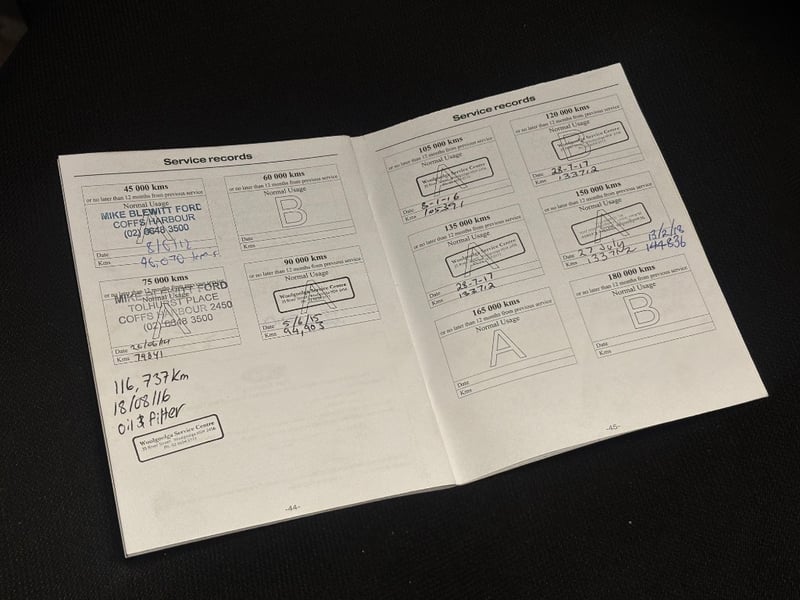 Service records
45 000 kms
or no later than 12 months from previous service
Normal Usage
MIKE BLEWITT FORD
COFFS HARBOUR
(02) 6648 3500
Date
Kms 46,070 kms
60 000 kms
or no later than 12 months from previous service
Normal Usage
B
Date
Kms
75 000 kms
or no later than 12 months from previous service
Normal Usage
MIKE BLEWITT FORD
TOLHURST PLACE
COFFS HARBOUR 2450
(02) 6648 3500
Date 26/06/14
Kms 79841
90 000 kms
or no later than 12 months from previous service
Normal Usage
A
Woolgoolga Service Centre
Date 5/6/15
Kms 94,903
116,737km
18/08/16
oil & filter
Woolgoolga Service Centre
-44-
Service records
105 000 kms
or no later than 12 months from previous service
Normal Usage
A
Woolgoolga Service Centre
Date 8-1-16
Kms 105391
120 000 kms
or no later than 12 months from previous service
Normal Usage
B
Woolgoolga Service Centre
Date 28-7-17
Kms 133712
135 000 kms
or no later than 12 months from previous service
Normal Usage
A
Woolgoolga Service Centre
Date 28-7-17
Kms 133712
150 000 kms
or no later than 12 months from previous service
Normal Usage
A
Woolgoolga Service Centre
Date 27 July 13/2/18
Kms 133712 144836
165 000 kms
or no later than 12 months from previous service
Normal Usage
A
Date
Kms
180 000 kms
or no later than 12 months from previous service
Normal Usage
B
Date
Kms
-45-